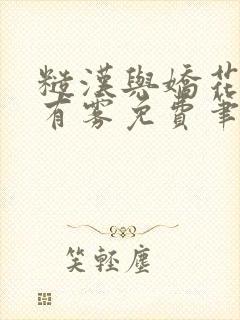 糙漢與嬌花
有霧免費筆
笑輕塵